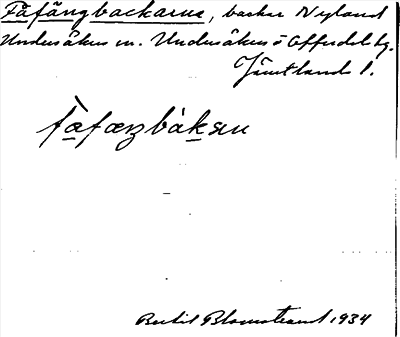 Fåfängbackarna, backar Nyland
Undersåkers sn. Undersåkers o Offerdals tg.
Jämtlands l.
fàfæŋbàkan
Bertil Blomstrand 1934